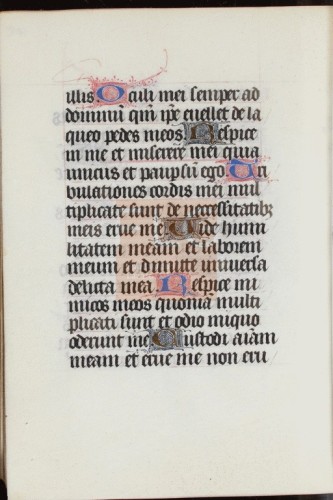 illis Oculi mei semper ad
dominū qm̄ ip̄e euellet de la
queo pedes meos Respice
in me et miserere mei quia
unicus et paup sū ego Tri
bulationes cordis mei mul
tiplicate sunt de necessitatibꝫ
meis erue me Uide humi
litatem meam et laborem
meum et dimitte uniuersa
delicta mea Respice ini
micos meos quoniā multi
plicati sunt et odio iniquo
oderunt me Custodi aīam
meam et erue me non eru